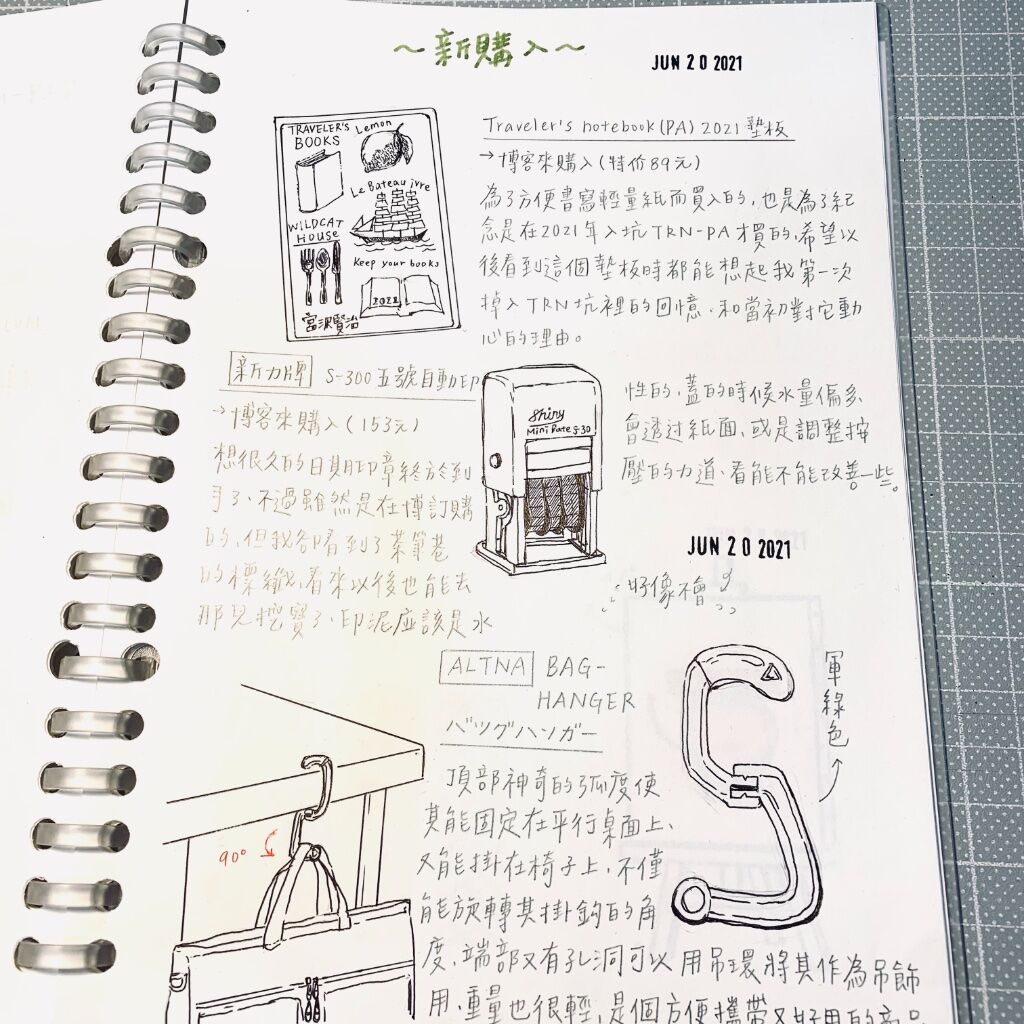 ～新購入～
JUN 20 2021
TRAVELER'S
BOOKS
Lemon
Le Bateau ivre
WILDCAT
HOUSE
Keep your books
2021
宮沢賢治
Traveler's notebook(PA) 2021 墊板
→博客來購入(特价89元)
為了方便書寫輕量紙而買入的,也是為了紀
念是在2021年入坑TRN-PA才買的,希望以
後看到這個墊板時都能想起我第一次
掉入TRN坑裡的回憶、和當初對它動
心的理由。
新力牌 S-300五號自動印
→博客來購入(153元)
想很久的日期印章終於到
手了、不過雖然是在博訂購
的,但我卻看到了菜筆巷
的標籤,看來以後也能去
那兒挖寶了、印泥應該是水
Shiny
Mini Date S-30
性的,蓋的時候水量偏多
會透过紙面、或是調整按
壓的力道、看能不能改善一些。
JUN 20 2021
好像不會
ALTNA BAG-
HANGER
バッグハンガー
軍綠色
90°
頂部神奇的弧度使
其能固定在平行桌面上、
又能掛在椅子上,不僅
能旋轉其掛鈎的角
度、端部又有孔洞可以用吊環將其作為吊飾
用、重量也很輕,是個方便攜帶又好用的商品